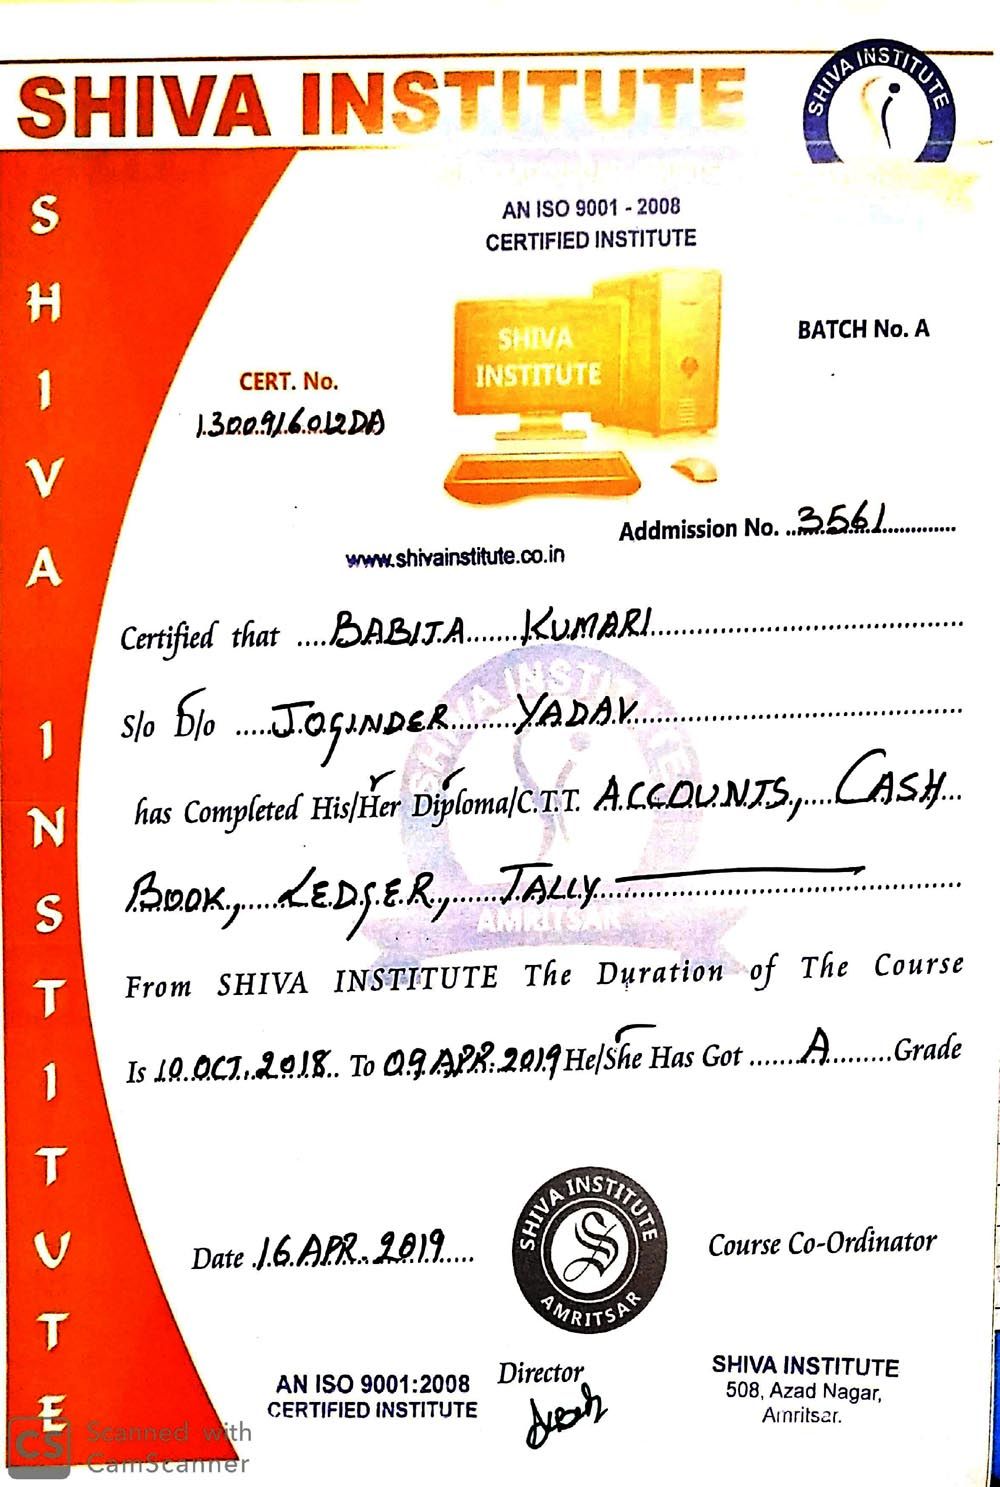 SHIVA INSTITUTE
SHIVA INSTITUTE
SHIVA INSTITUTE
AN ISO 9001 - 2008
CERTIFIED INSTITUTE
SHIVA
INSTITUTE
BATCH No. A
CERT. No.
13009/6012DA
Addmission No. ..3561..............
www.shivainstitute.co.in
Certified that ....BABITA.......KUMARI............
S/o D/o .....JOGINDER.......YADAV............
has Completed His/Her Diploma/C.T.T. ACCOUNTS, CASH
BOOK, LEDGER, TALLY
SHIVA INSTITUTE
AMRITSAR
From SHIVA INSTITUTE The Duration of The Course
Is 10 OCT. 2018.. To 09 APR. 2019 He/She Has Got .......A........Grade
Date .16 APR. 2019....
SHIVA INSTITUTE
AMRITSAR
Course Co-Ordinator
Director
AN ISO 9001:2008
CERTIFIED INSTITUTE
SHIVA INSTITUTE
508, Azad Nagar,
Amritsar.
CS Scanned with
CamScanner